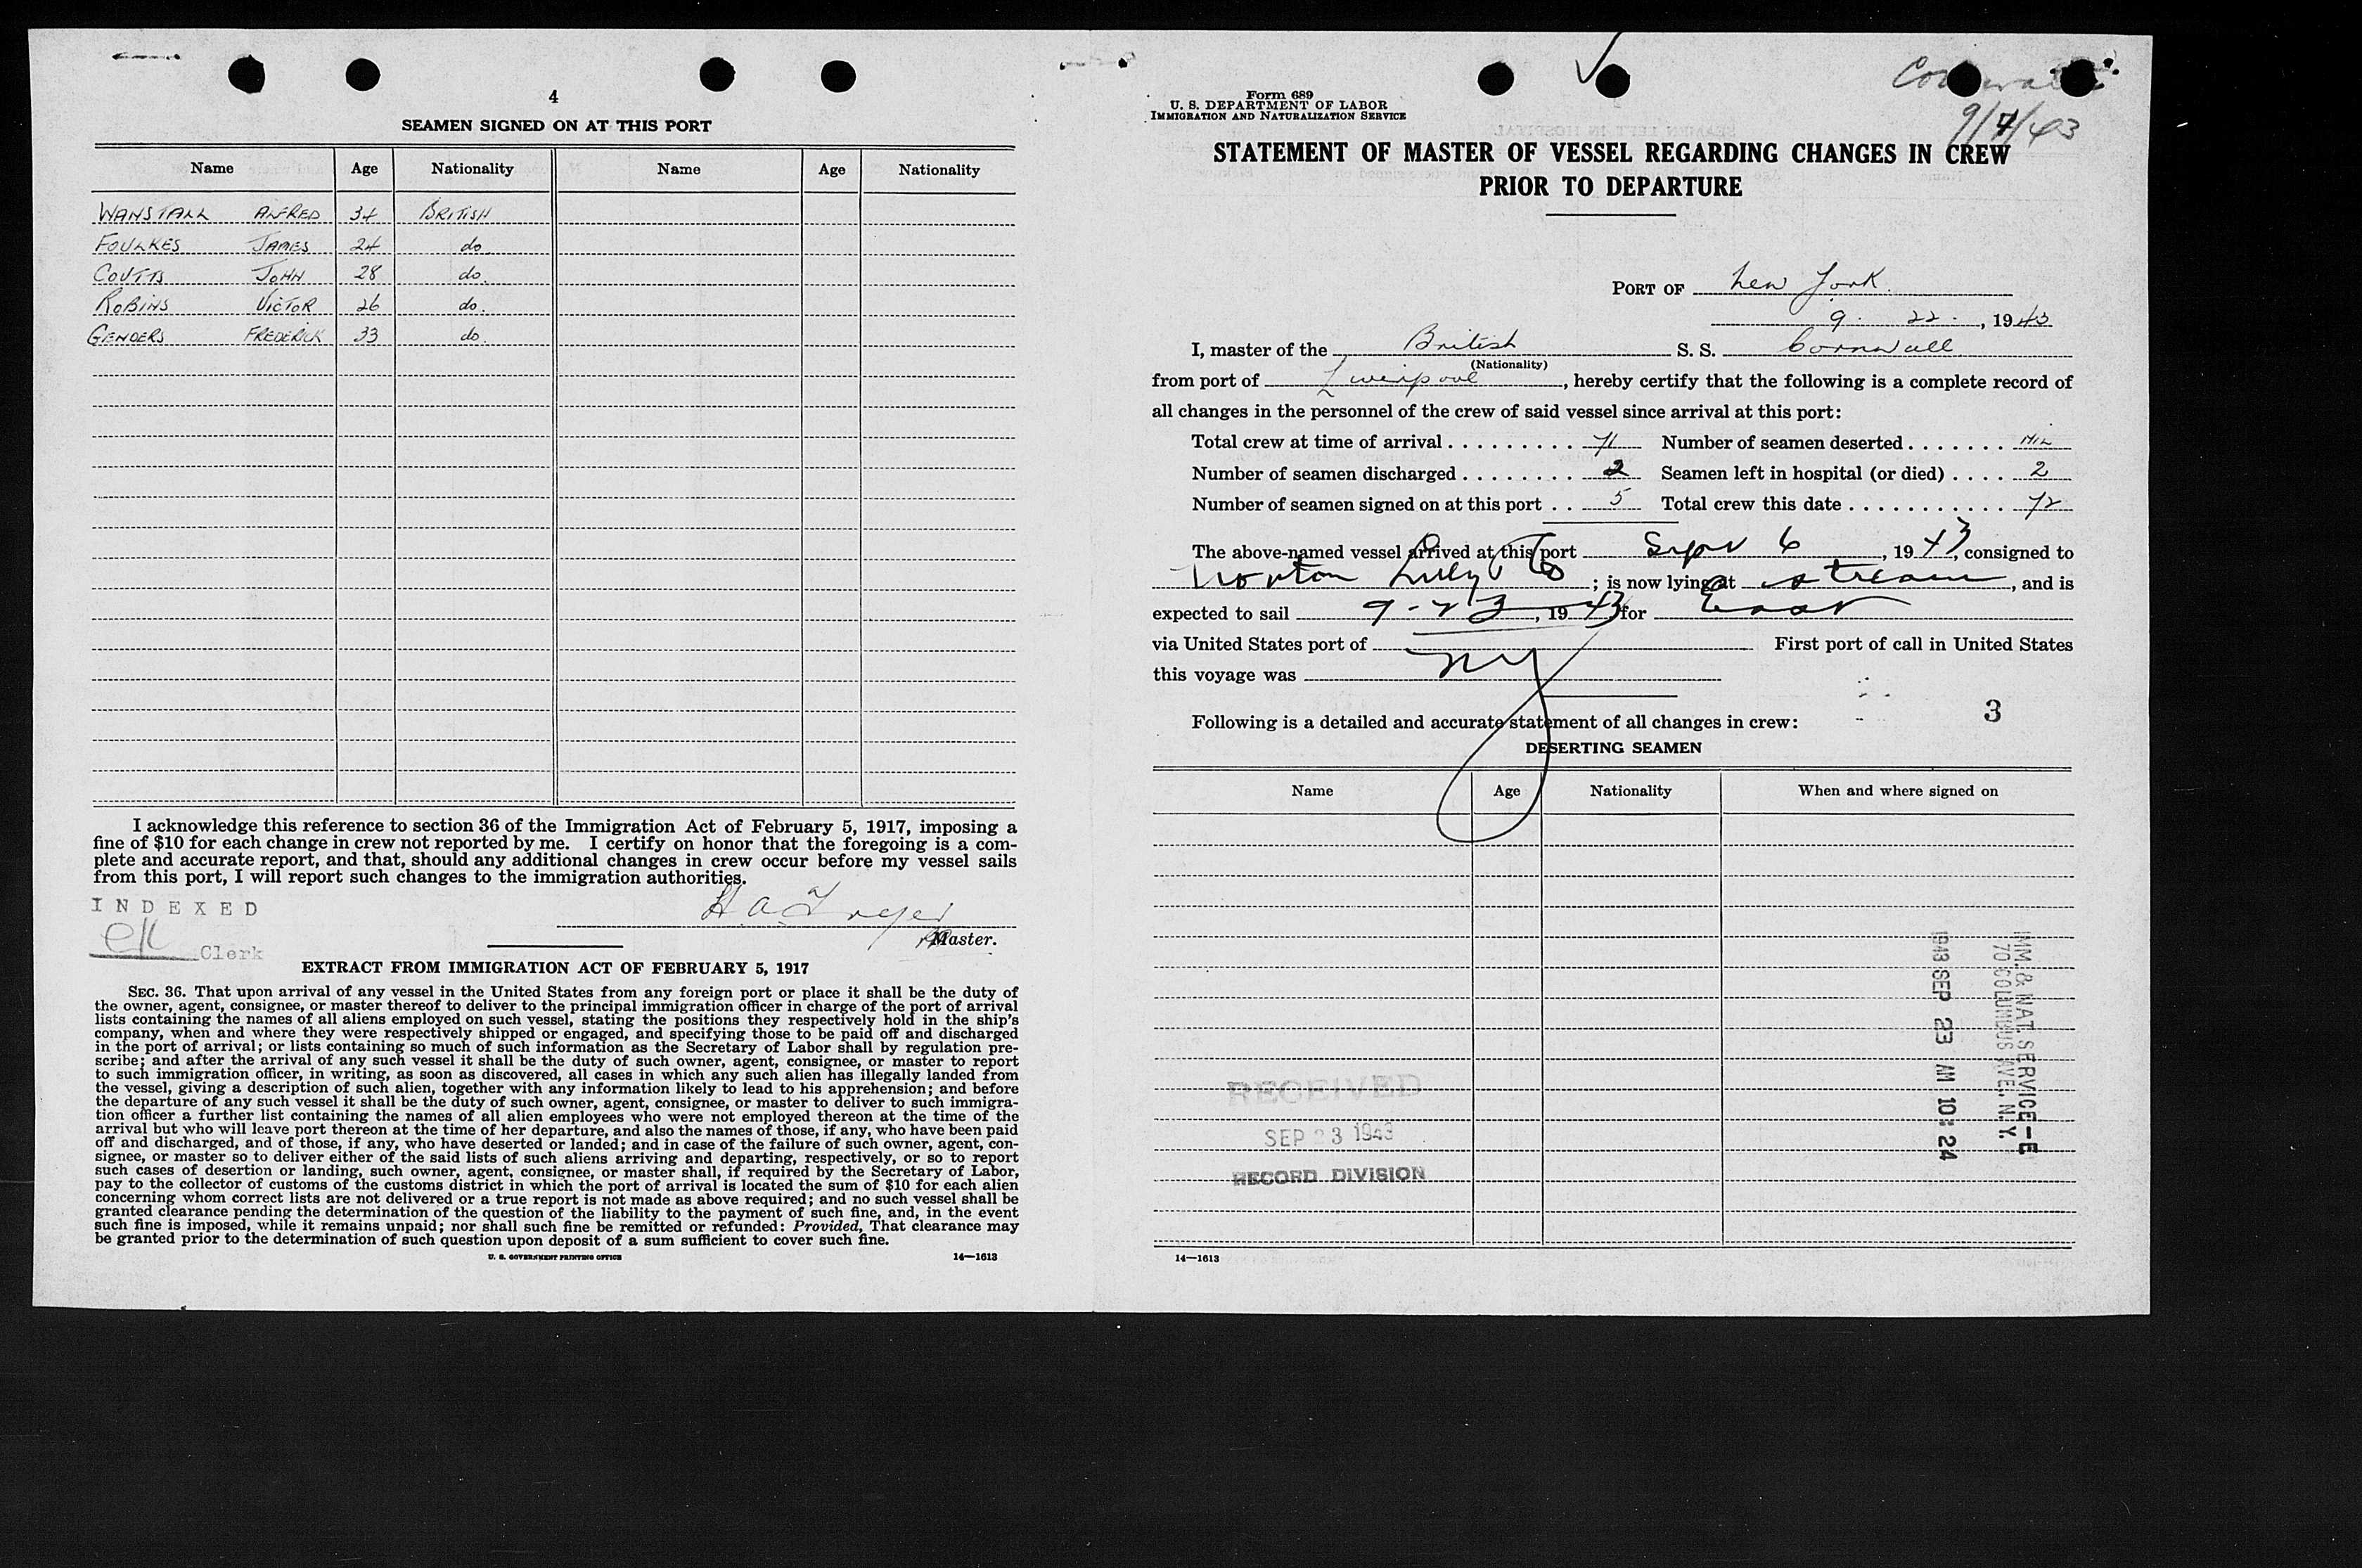 4
SEAMEN SIGNED ON AT THIS PORT
Name Age Nationality Name Age Nationality
WANSTALL ALFRED 34 BRITISH
FOULKES JAMES 24 do
COUTTS JOHN 28 do.
ROBINS VICTOR 26 do.
GENDERS FREDERICK 33 do.
I acknowledge this reference to section 36 of the Immigration Act of February 5, 1917, imposing a
fine of $10 for each change in crew not reported by me. I certify on honor that the foregoing is a com-
plete and accurate report, and that, should any additional changes in crew occur before my vessel sails
from this port, I will report such changes to the immigration authorities.
INDEXED
Clerk
Master.
EXTRACT FROM IMMIGRATION ACT OF FEBRUARY 5, 1917
SEC. 36. That upon arrival of any vessel in the United States from any foreign port or place it shall be the duty of
the owner, agent, consignee, or master thereof to deliver to the principal immigration officer in charge of the port of arrival
lists containing the names of all aliens employed on such vessel, stating the positions they respectively hold in the ship's
company, when and where they were respectively shipped or engaged, and specifying those to be paid off and discharged
in the port of arrival; or lists containing so much of such information as the Secretary of Labor shall by regulation pre-
scribe; and after the arrival of any such vessel it shall be the duty of such owner, agent, consignee, or master to report
to such immigration officer, in writing, as soon as discovered, all cases in which any such alien has illegally landed from
the vessel, giving a description of such alien, together with any information likely to lead to his apprehension; and before
the departure of any such vessel it shall be the duty of such owner, agent, consignee, or master to deliver to such immigra-
tion officer a further list containing the names of all alien employees who were not employed thereon at the time of the
arrival but who will leave port thereon at the time of her departure, and also the names of those, if any, who have been paid
off and discharged, and of those, if any, who have deserted or landed; and in case of the failure of such owner, agent, con-
signee, or master so to deliver either of the said lists of such aliens arriving and departing, respectively, or so to report
such cases of desertion or landing, such owner, agent, consignee, or master shall, if required by the Secretary of Labor,
pay to the collector of customs of the customs district in which the port of arrival is located the sum of $10 for each alien
concerning whom correct lists are not delivered or a true report is not made as above required; and no such vessel shall be
granted clearance pending the determination of the question of the liability to the payment of such fine, and, in the event
such fine is imposed, while it remains unpaid; nor shall such fine be remitted or refunded: Provided, That clearance may
be granted prior to the determination of such question upon deposit of a sum sufficient to cover such fine.
U. S. GOVERNMENT PRINTING OFFICE 14—1613
9/7/43
Form 689
U. S. DEPARTMENT OF LABOR
IMMIGRATION AND NATURALIZATION SERVICE
STATEMENT OF MASTER OF VESSEL REGARDING CHANGES IN CREW
PRIOR TO DEPARTURE
PORT OF New York.
9. 22., 1943
I, master of the British S. S. Cornwall
(Nationality)
from port of Liverpool, hereby certify that the following is a complete record of
all changes in the personnel of the crew of said vessel since arrival at this port:
Total crew at time of arrival 71 Number of seamen deserted NIL
Number of seamen discharged 2 Seamen left in hospital (or died) 2
Number of seamen signed on at this port 5 Total crew this date 72
The above-named vessel arrived at this port Sept 6, 1943, consigned to
Norton Lilly & Co; is now lying at stream, and is
expected to sail 9-23, 1943 for East
via United States port of First port of call in United States
this voyage was NY
Following is a detailed and accurate statement of all changes in crew: 3
DESERTING SEAMEN
Name Age Nationality When and where signed on
RECEIVED
SEP 23 1943
RECORD DIVISION
IMM. & NAT. SERVICE-E
70 COLUMBUS AVE., N.Y.
1943 SEP 23 AM 10:24
14—1613